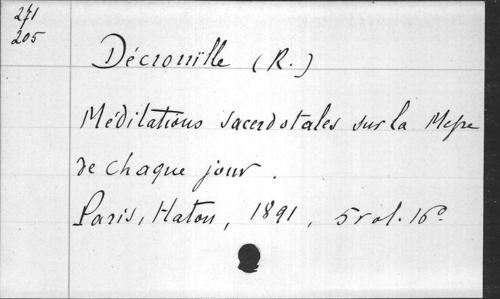 271
205
Décrouïlle (R.)
Méditations sacerdotales sur la Messe
de chaque jour.
Paris, Haton, 1891, 5 vol. 16º